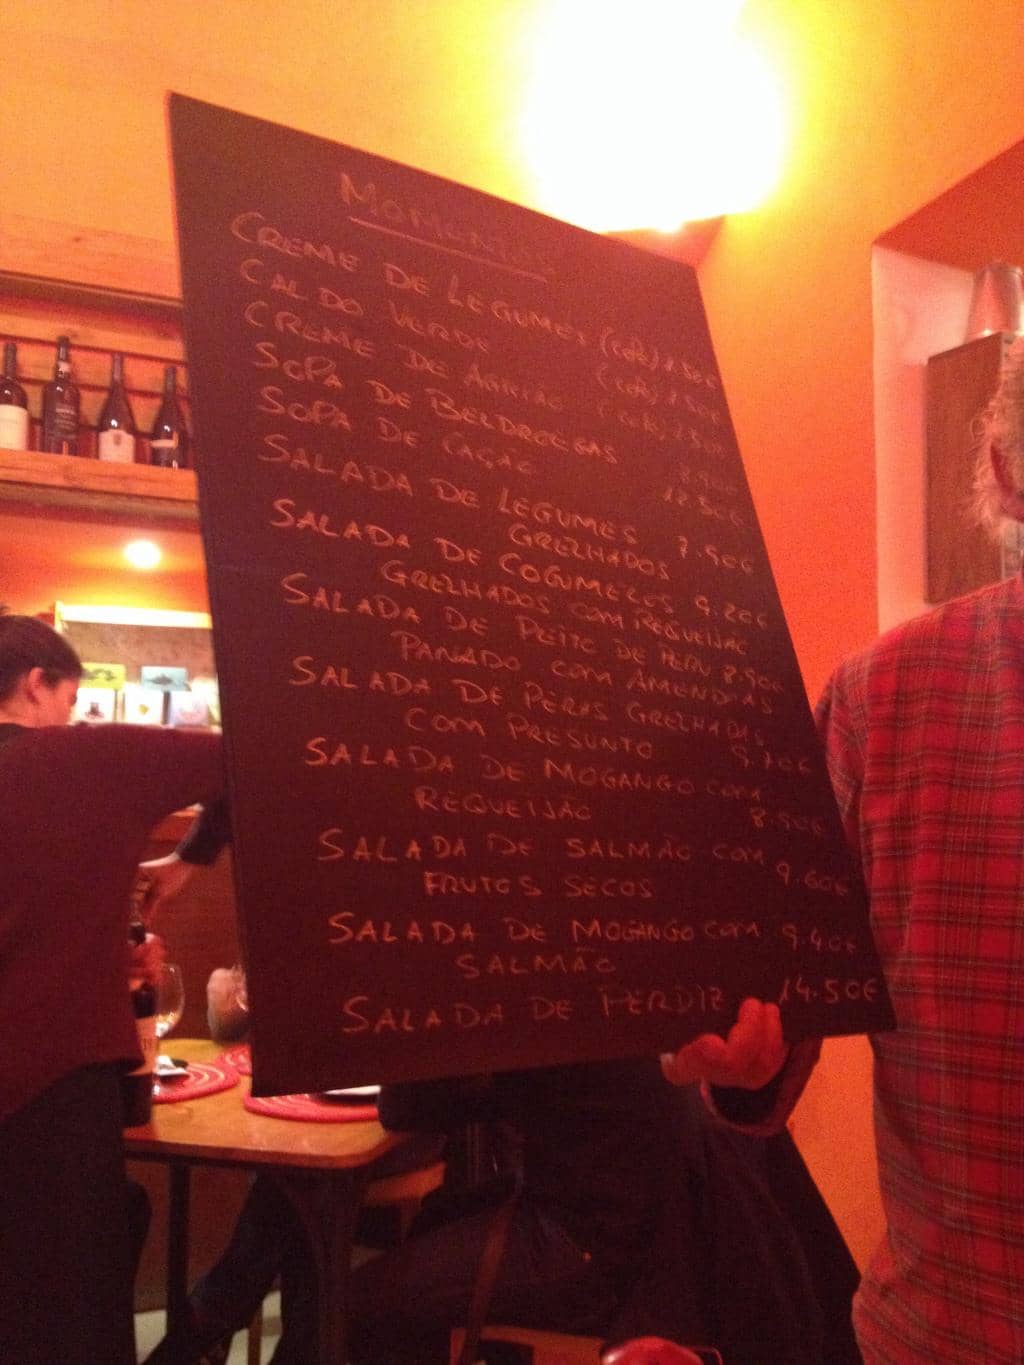 CREME DE LEGUMES (COPO) 1.50€
CALDO VERDE (COPO) 1.50€
CREME DE AGRIÃO
SOPA DE BELDROEGAS 8.90€
SOPA DE CAÇÃO 12.50€
SALADA DE LEGUMES 7.90€
GRELHADOS
SALADA DE COGUMELOS 9.20€
GRELHADOS COM REQUEIJÃO
SALADA DE PEITO DE PERU 8.90€
PANADO COM AMENDOAS
SALADA DE PERAS GRELHADAS
COM PRESUNTO 9.70€
SALADA DE MOGANGO COM
REQUEIJÃO 8.90€
SALADA DE SALMÃO COM 9.60€
FRUTOS SECOS
SALADA DE MOGANGO COM 9.40€
SALMÃO
SALADA DE PERDIZ 14.50€